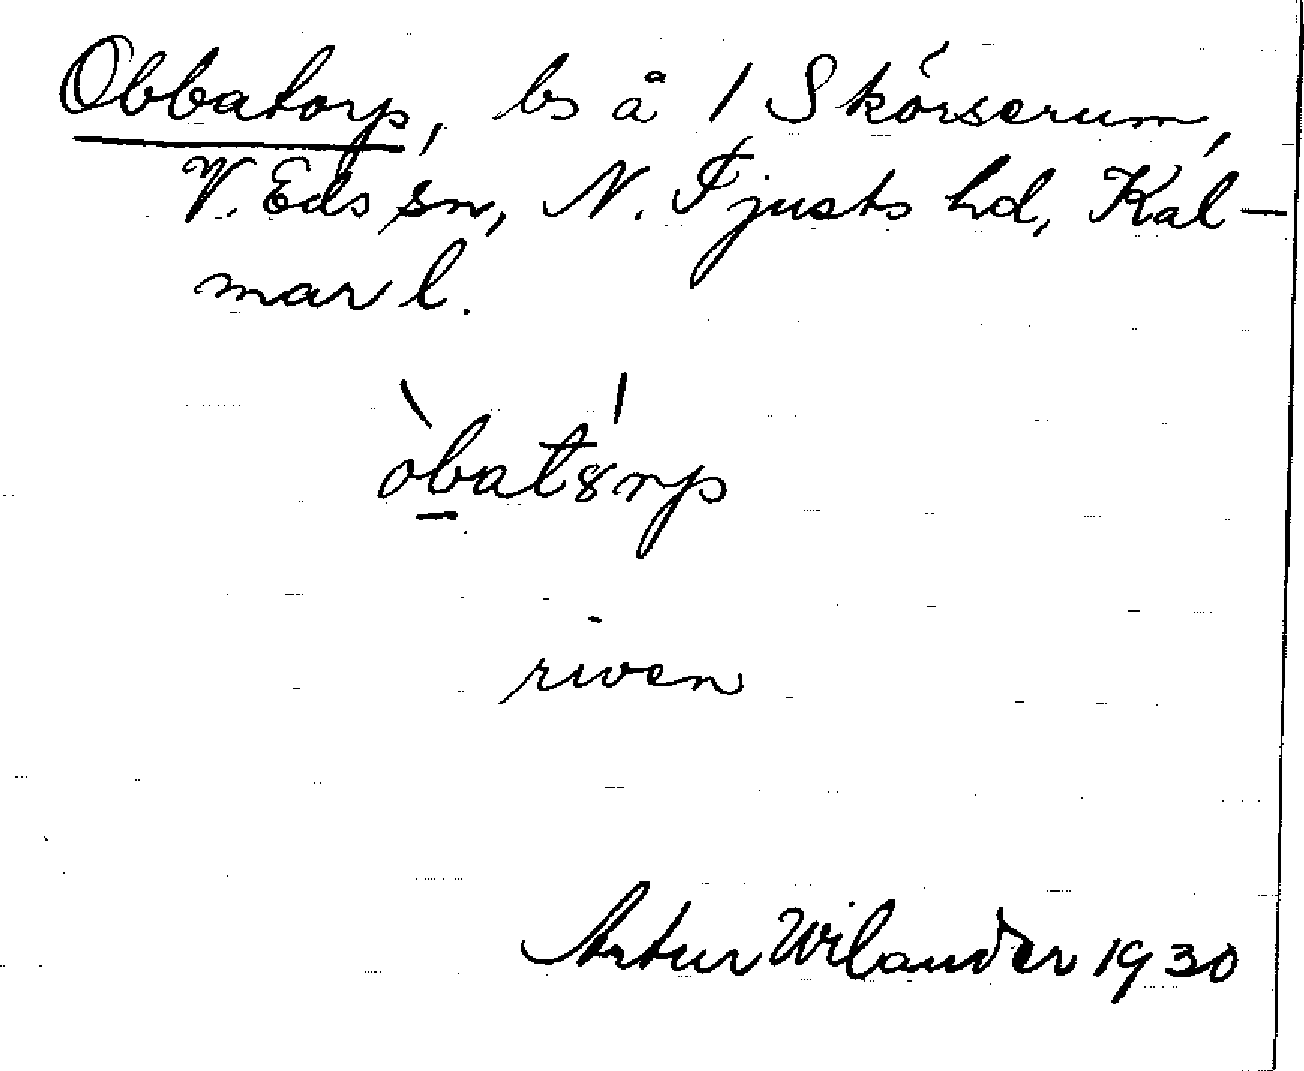 Obbatorp, bs å 1 Skörserum,
V. Eds sn, N. Tjusts hd, Kal-
mar l.
òbatₒrp
riven
Artur Wilander 1930